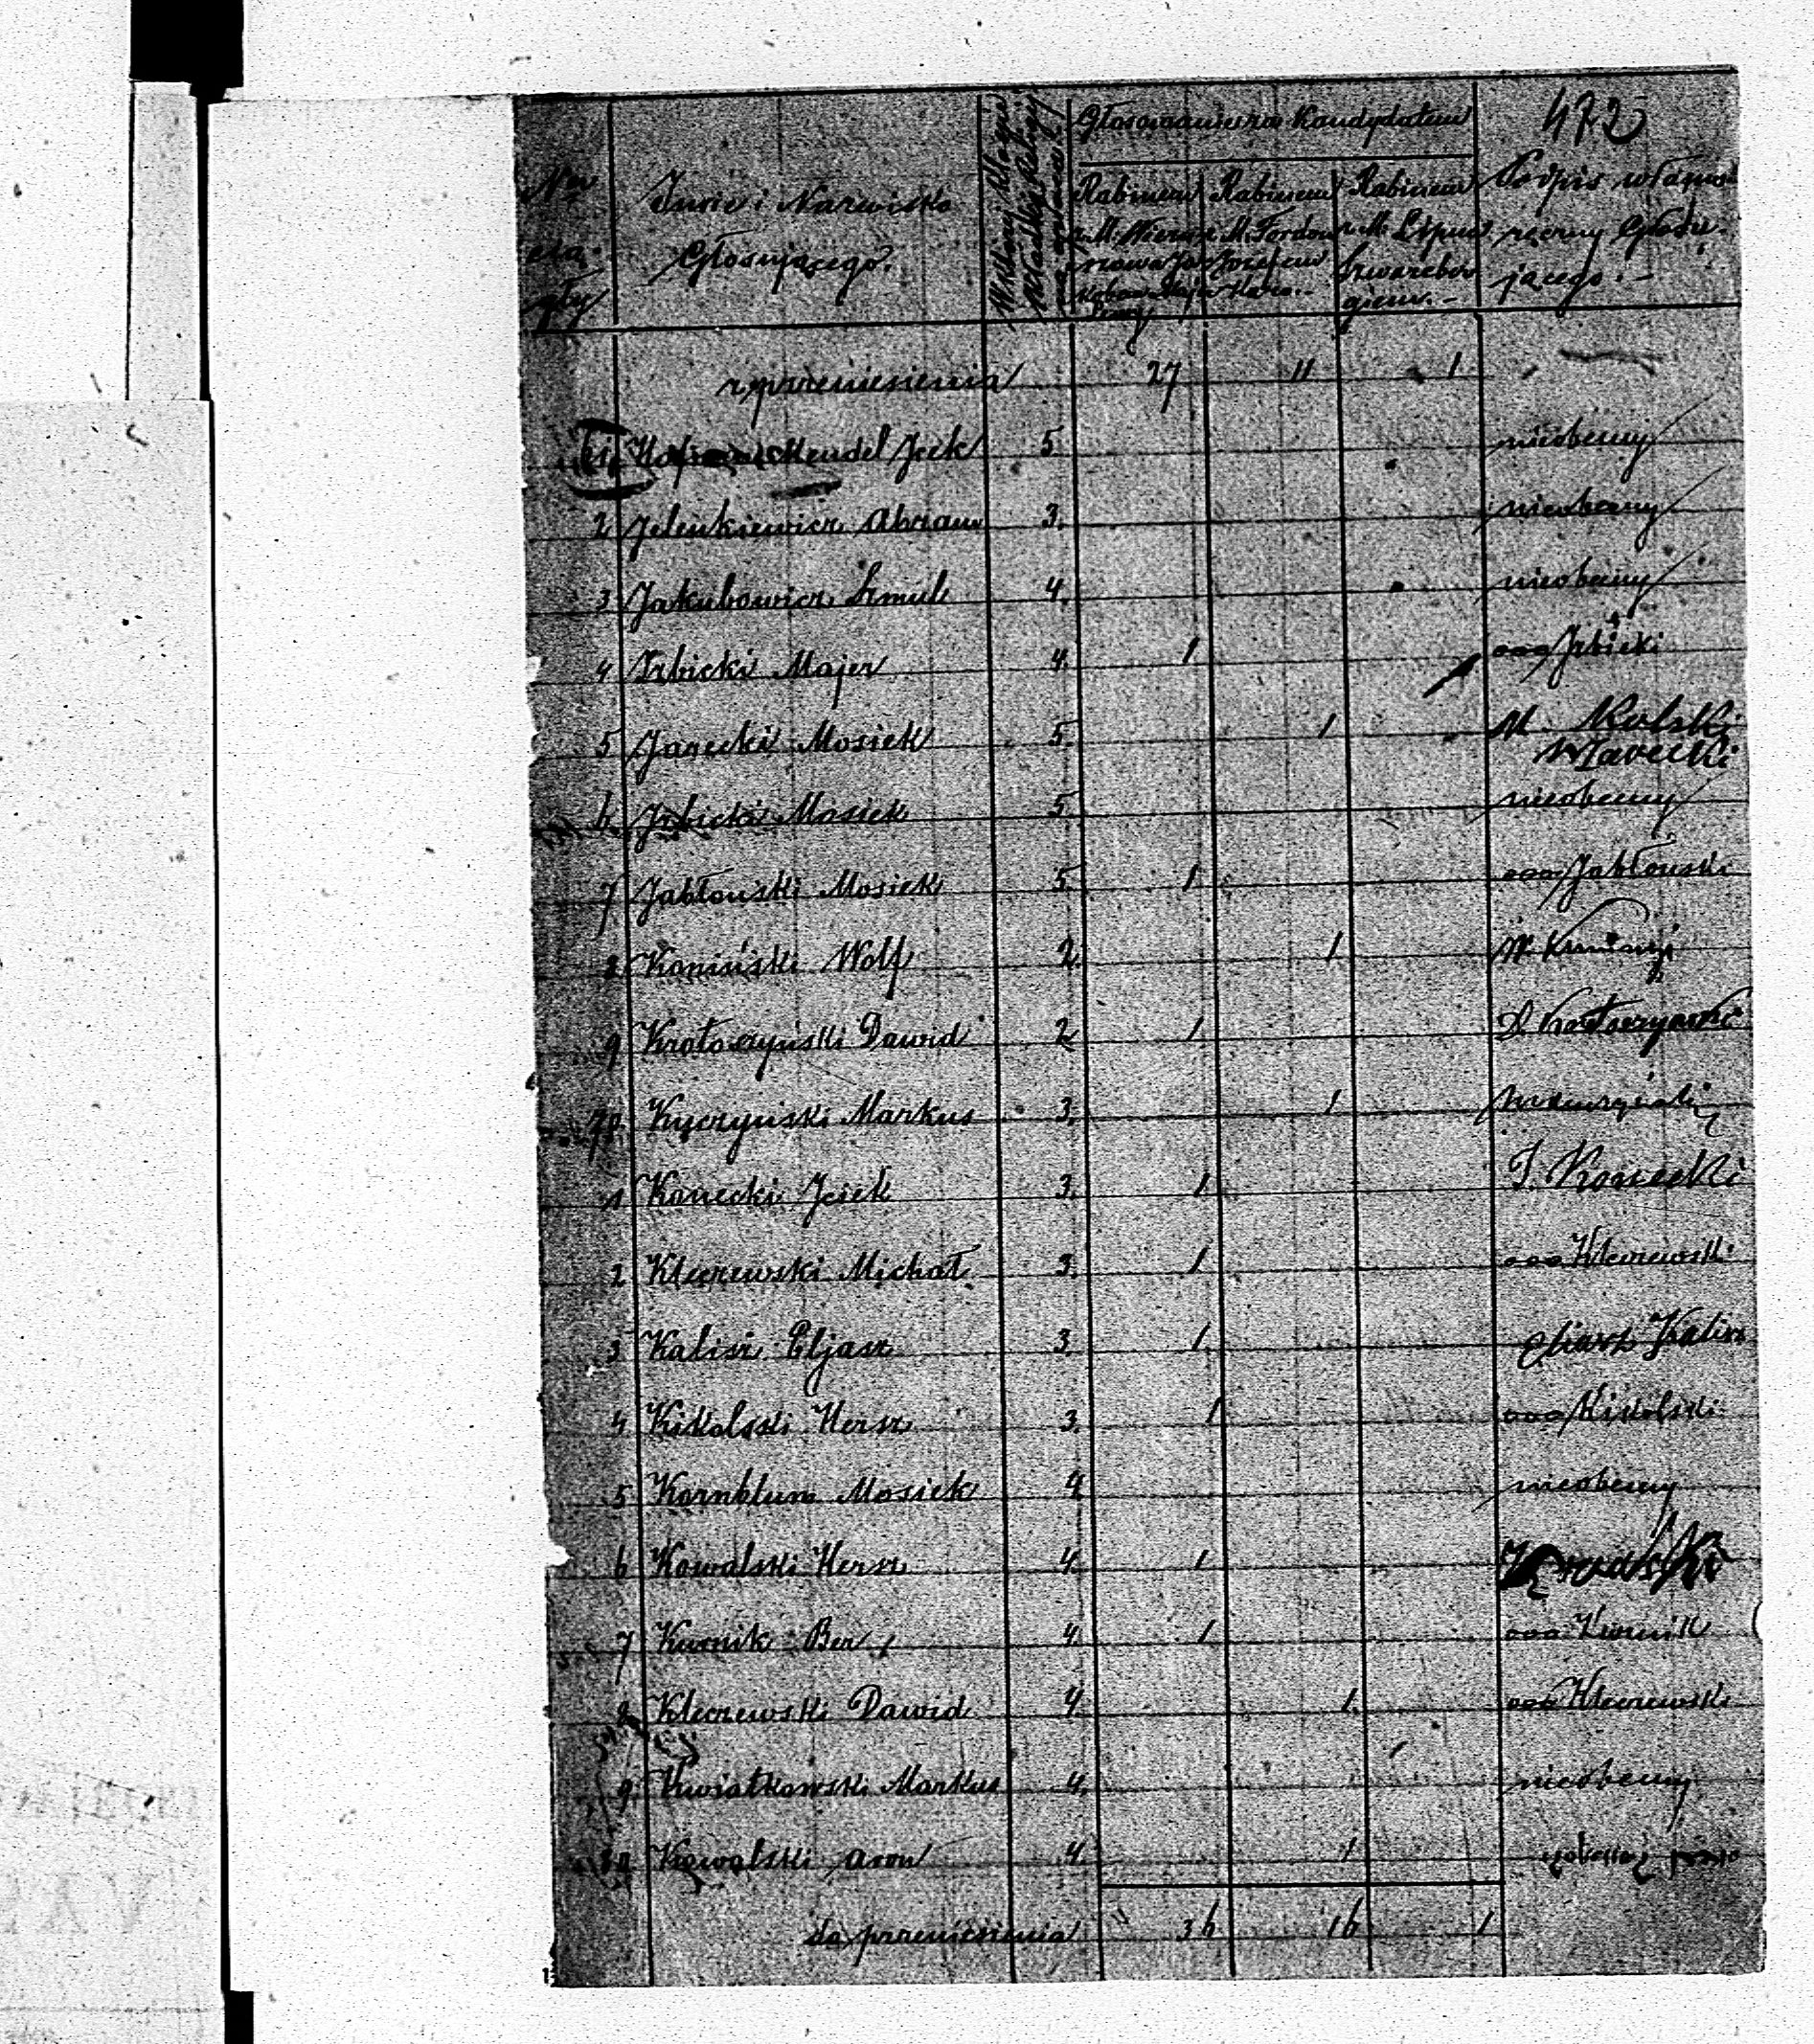 472
Głosowanie za Kandydatem
Imie i Nazwisko
Głosującego.
W której Klassie
Składki Religij
Rabinem
z M.
Rabinem
z M. Fordon
Józefem
Rabinem
z M. Lipna
Szwarcber
giem. -
Podpis własno
ręczny Głosu-
jącego. -
z przeniesienia 27 11 1
61 Mendel Icek 5 nieobecny
2 Jelenkiewicz Abram 3. nieobecny
3 Jakubowicz Szmul 4. nieobecny
4 Izbicki Majer 4. 1 ooo Izbicki
5 Jarecki Mosiek 5. 1 M Jarecki
6 Izbicki Mosiek 5. nieobecny
7 Jabłonski Mosiek 5. 1 ooo Jabłonski
8 Koniński Wolf 2. 1
9 Krotoszyński Dawid 2 1
70. Kęczyński Markus 3. 1
1 Konecki Jciek 3. 1 J. Konecki
2 Kleczewski Michał 3. 1 ooo Kleczewski
3 Kalisz Eljasz 3. 1 Eliasz Kalisz
4 Kikolski Hersz 3. 1 ooo Kikolski
5 Kornblum Mosiek 4. nieobecny
6 Kowalski Hersz 4. 1
7 Kurnik Ber 4. 1 ooo Kurnik
8 Kleczewski Dawid 4. 1 ooo Kleczewski
9. Kwiatkowski Markus 4. nieobecny
80 Kowalski Aron 4. 1
do przeniesienia 36 16 1